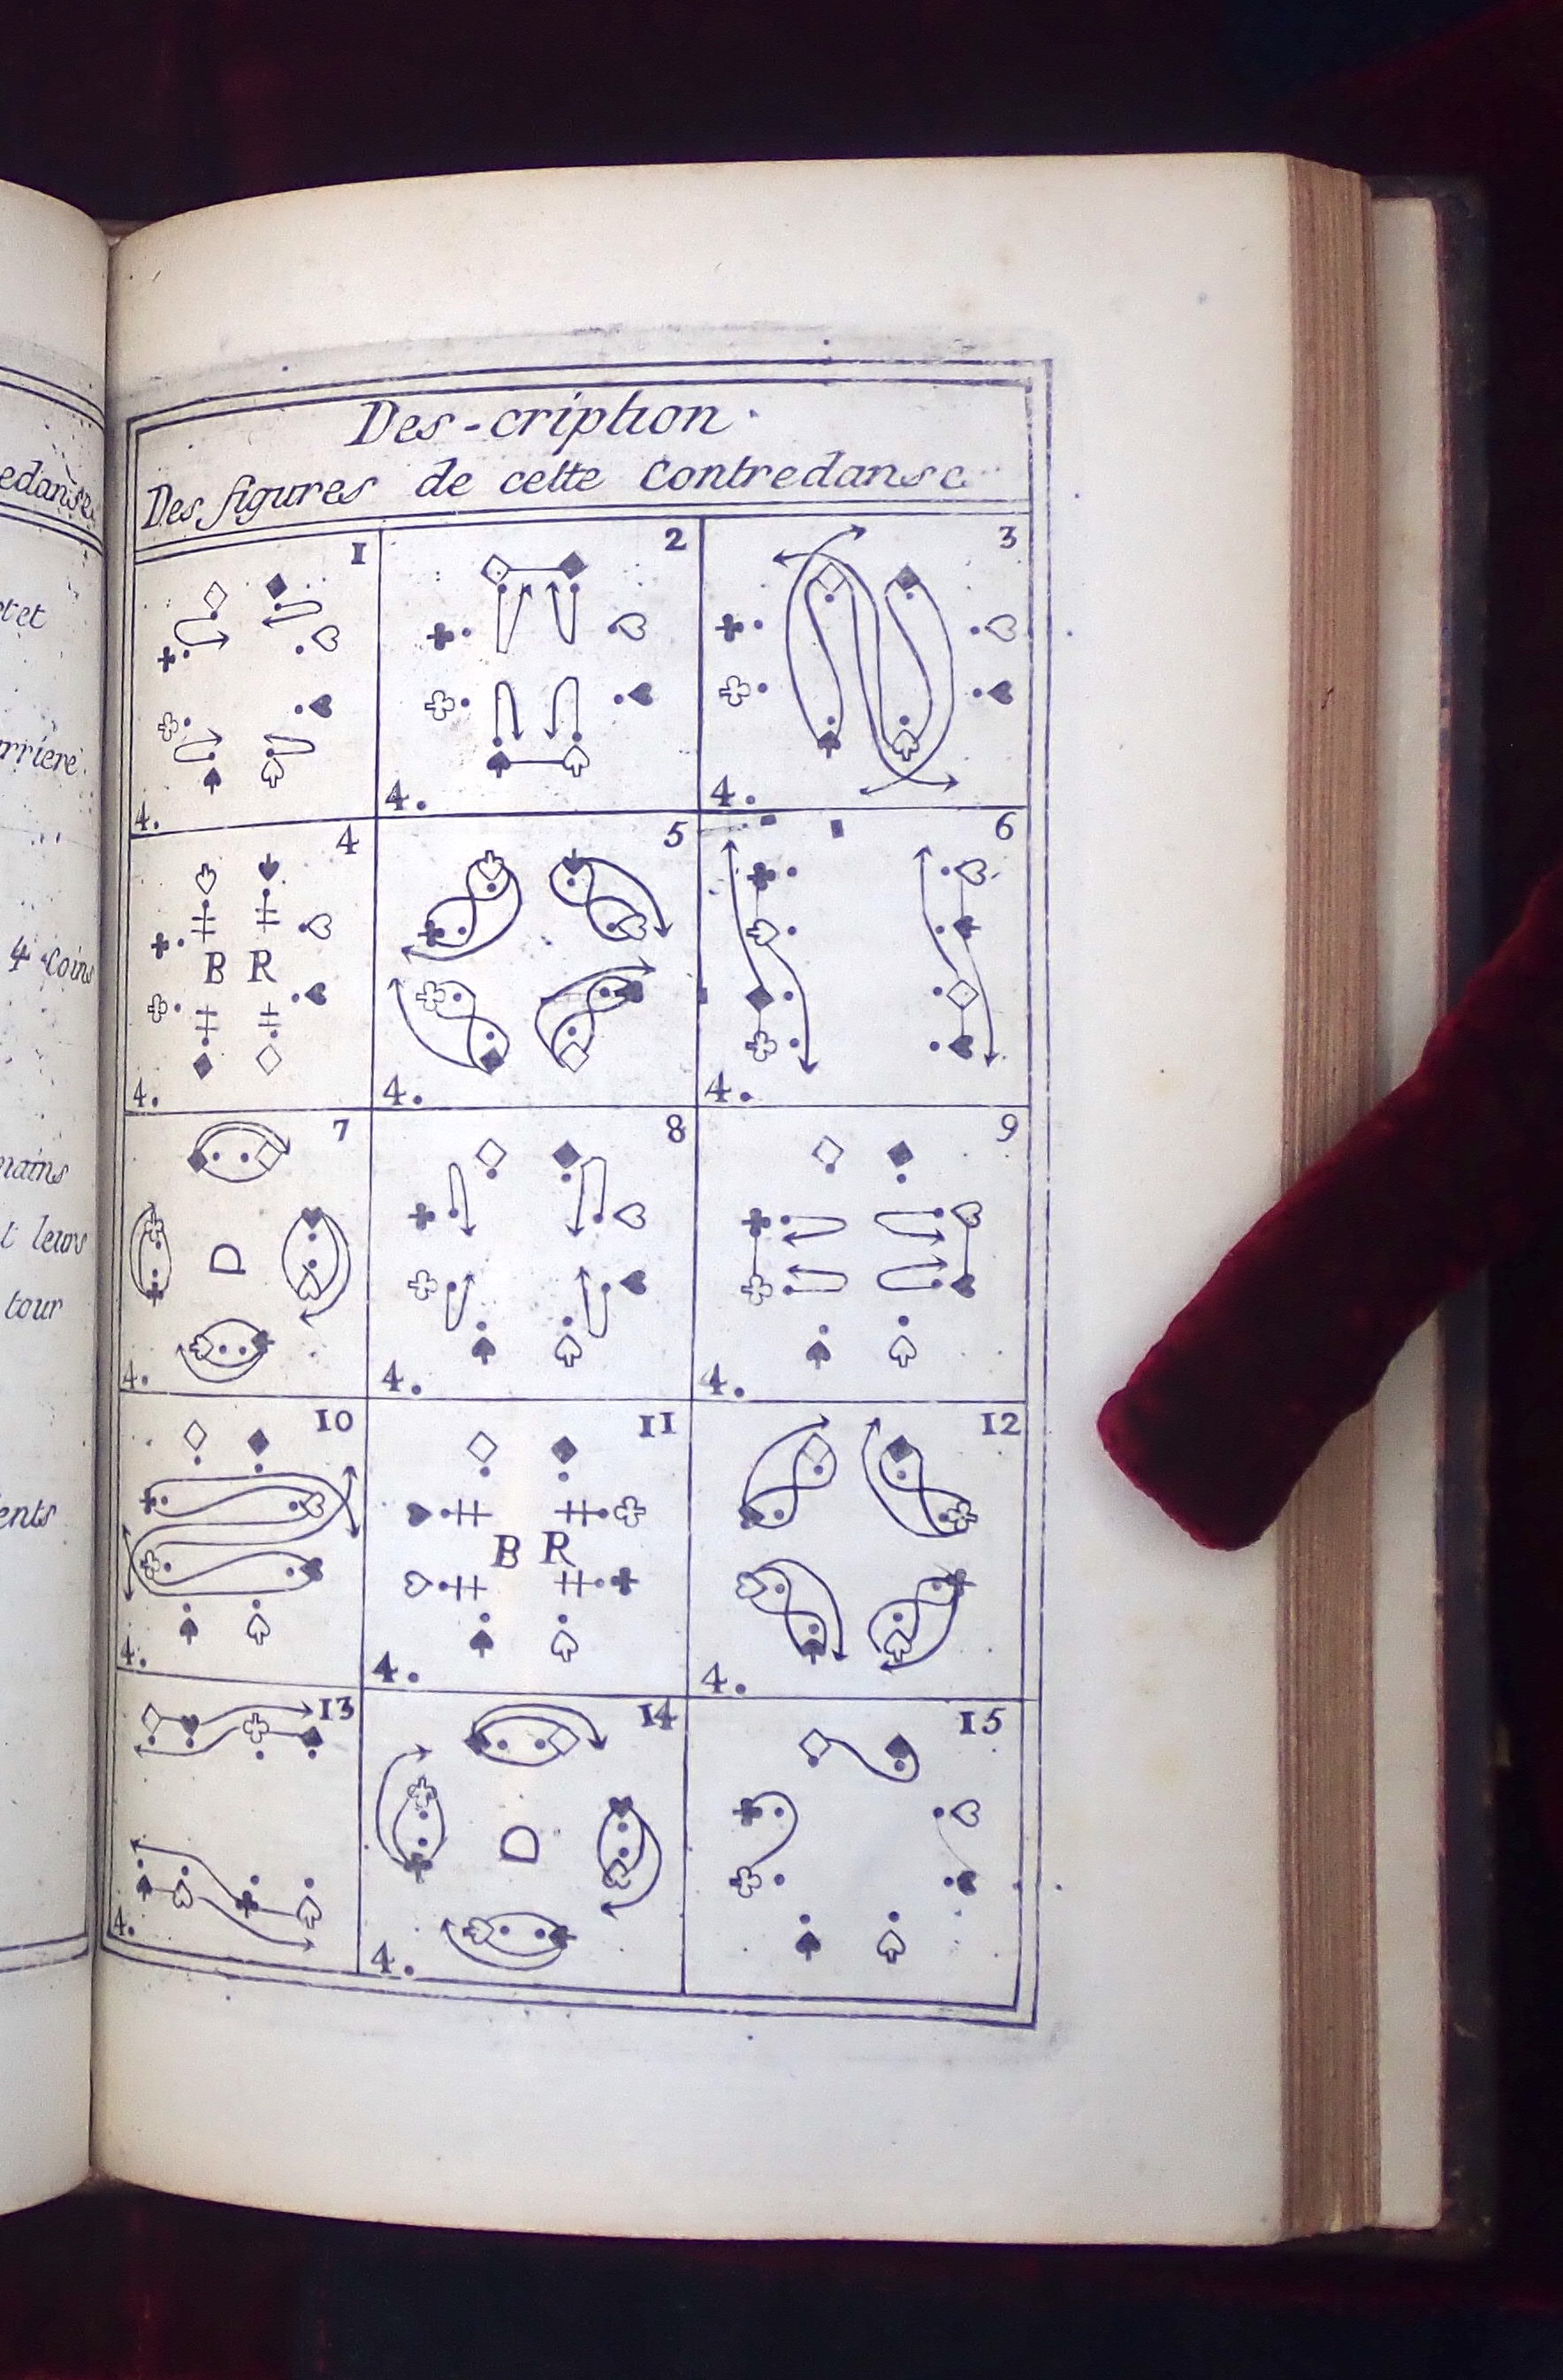 4 coins
leurs
tour
Des-cription.
Des figures de cette Contredanse
1 2 3
4. 4. 4.
4 5 6
B R
4. 4. 4.
7 8 9
D
4. 4. 4.
10 11 12
B R
4. 4. 4.
13 14 15
D
4. 4.